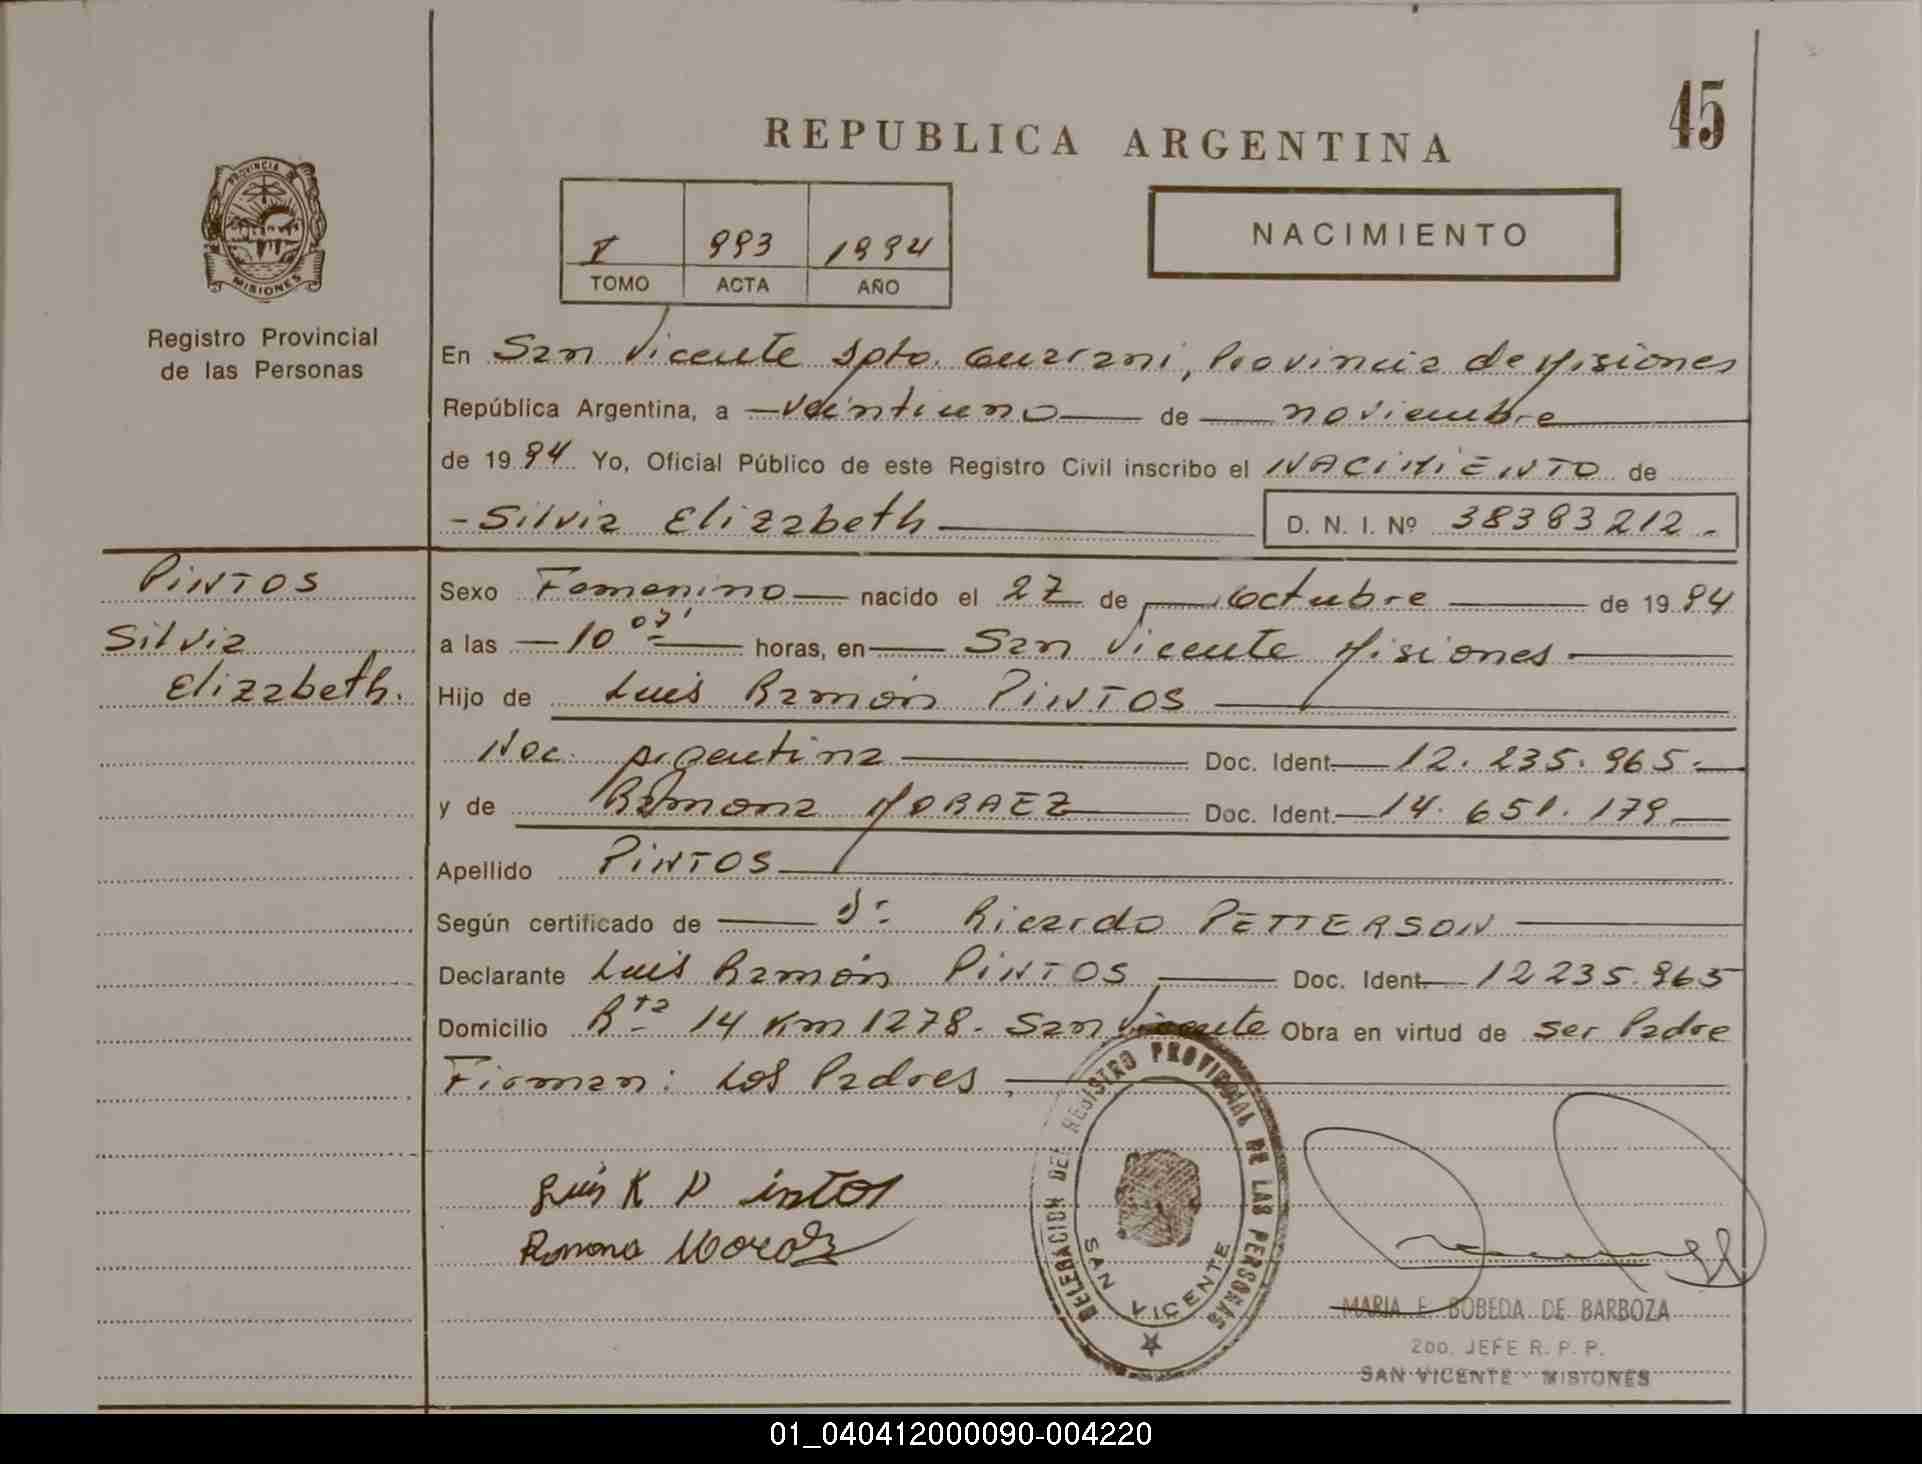 45
REPUBLICA ARGENTINA
PROVINCIA DE
MISIONES
I 993 1994
TOMO ACTA AÑO
NACIMIENTO
Registro Provincial
de las Personas
En San Vicente Dpto. Guarani, Provincia de Misiones
República Argentina, a —veintiuno— de — noviembre —
de 19 94 Yo, Oficial Público de este Registro Civil inscribo el NACIMIENTO de
- Silvia Elizabeth — D. N. I. Nº 38383212.-
PINTOS
Silvia
Elizabeth.
Sexo Femenino — nacido el 27 de — octubre — de 19 94
a las — 10 07' — horas, en — San Vicente Misiones —
Hijo de Luis Ramón PINTOS —
Nac. Argentina — Doc. Ident. — 12.235.965.-
y de Ramona MORAEZ — Doc. Ident. — 14.651.179 —
Apellido PINTOS —
Según certificado de — Dr Ricardo PETTERSON —
Declarante Luis Ramón PINTOS — Doc. Ident. — 12235.965
Domicilio Rta 14 Km 1278. San Vicente Obra en virtud de ser Padre
Firman: Los Padres. —
Luis R Pintos
Ramona Moraez
DELEGACION DEL REGISTRO PROVINCIAL DE LAS PERSONAS
SAN VICENTE
MARIA E. BOBEDA DE BARBOZA
2DO. JEFE R. P. P.
SAN VICENTE - MISIONES
01_040412000090-004220